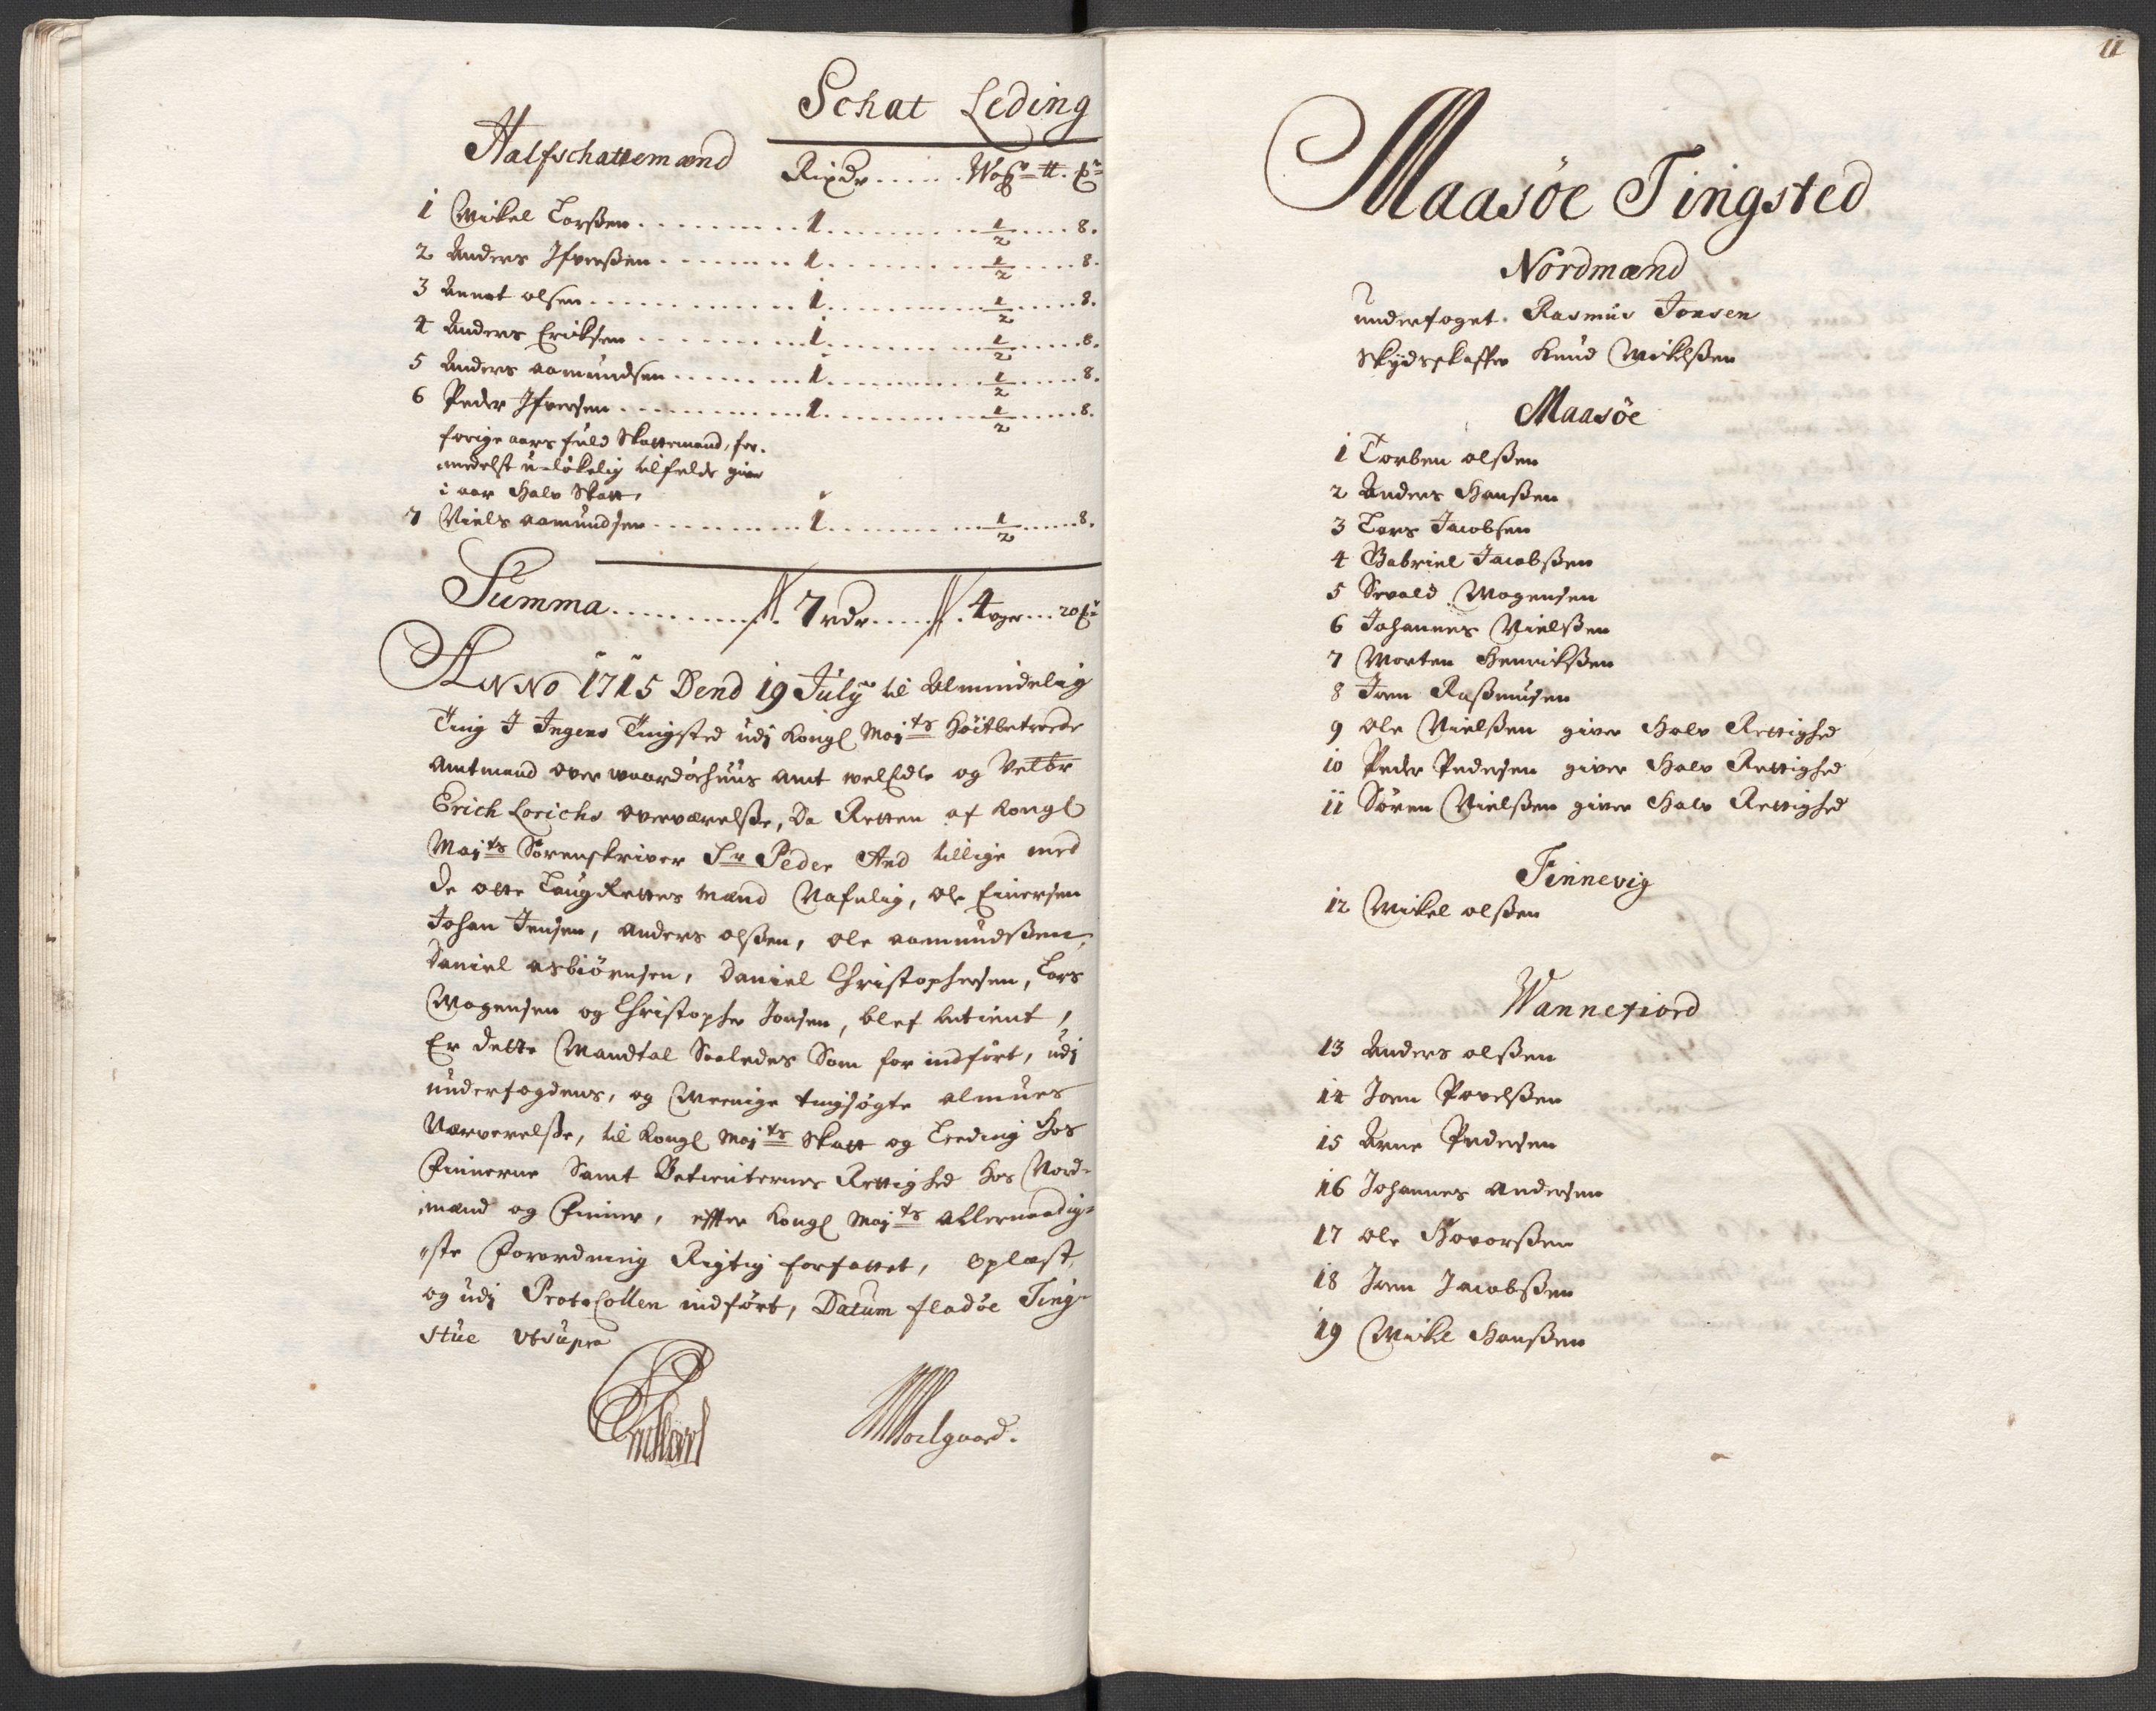 Schat Leding
Halfschattemænd
Rixdr ..... Wog - ℔. 
1 Mickel Larsßen ......... 1 ......... 1/2 ..... 8.
2 Anders Ifversßen ....... 1 ......... 1/2 ..... 8.
3 Anders olsen ......... 1 ......... 1/2 ..... 8.
4 Anders Ericksen ......... 1 ......... 1/2 ..... 8.
5 Anders aamundsen ....... 1 ......... 1/2 ..... 8.
6 Peder Ifversen ......... 1 ......... 1/2 ..... 8.
forige aars fuld Skattemand, for-
medelst u-løkelig tilfelde giver
i aar Halv Skatt,
7 Niels aamundsen ......... 1 ......... 1/2 ..... 8.
Summa ......... 7 rdr ...... 4 oger ... 20
Anno 1715 Dend 19 July til Almindelig
Ting I Ingens Tingsted udj Kongl Maj ts Høitbetroede
Amtmand over waardøehuus amt welEdle og Velbr
Erich Lorichs overværelße, Da Retten af Kongl
Maj ts Sorenskriver Sr Peder And tillige med
de otte LaugRettes Mænd Nafnlig, Ole Einersen
Johan Jensen, Anders olßen, ole aamundßen,
Daniel asbiørensen, Daniel Christophersen, Lars
Mogensen og Christopher Jonsen, blef betient,
Er dette Mandtal Saaledes Som for indført, udj
underfogdens, og Meenige tingsøgte almues
Nærverelße, til Kongl Maj ts Skatt og Leeding hos
Finnerne Samt Betienternes Rettighed hos Nord-
mænd og Finner, effter Kongl Maj ts allernaadig-
ste Forordning Rigtig forfattet, Oplæst,
og udj Protocollen indført, Datum fladøe Ting-
stue Utsupra
11
Maasøe Tingsted
Nordmænd
underfoget. Rasmus Jonsen
Skydsskaffer Knud Mickelßen
Maasøe
1 Torben olßen
2 Anders Hanßen
3 Lars Jacobsen
4 Gabriel Jacobßen
5 Sevald Mogensen
6 Johannes Nielßen
7 Morten Henrickßen
8 Joen Raßmusen
9 Ole Nielßen giver Halv Rettighed
10 Peder Pedersen giver Halv Rettighed
11 Søren Nielßen giver Halv Rettighed
Finnevig
12 Mickel olßen
Wannefiord
13 Anders olßen
14 Joen Povelßen
15 Arne Pedersen
16 Johannes Andersen
17 Ole Havorßen
18 Joen Jacobßen
19 Mickel Hanßen